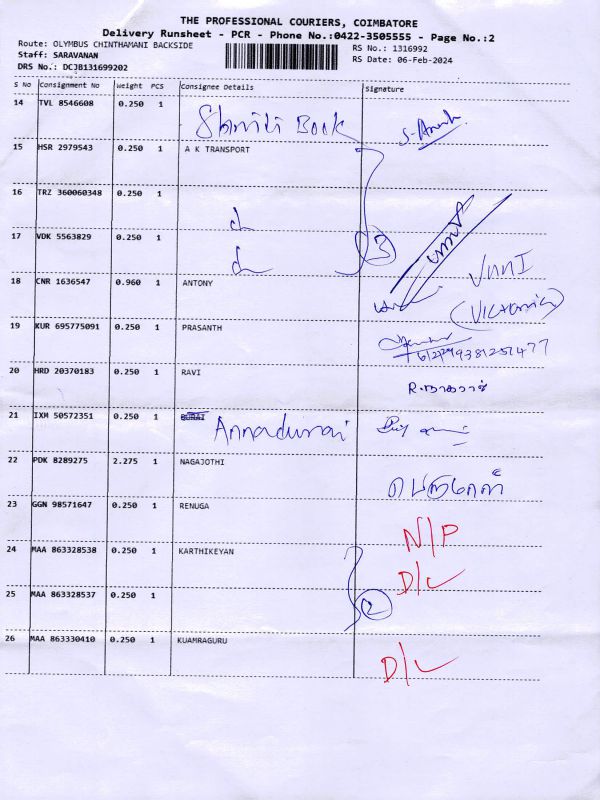 THE PROFESSIONAL COURIERS, COIMBATORE
Delivery Runsheet - PCR - Phone No.:0422-3505555 - Page No.:2
Route: OLYMBUS CHINTHAMANI BACKSIDE
RS No.: 1316992
Staff: SARAVANAN
RS Date: 06-Feb-2024
DRS No.: DCJB131699202
S No Consignment No Weight PCS Consignee Details Signature
14 TVL 8546608 0.250 1
Book
15 HSR 2979543 0.250 1 A K TRANSPORT
16 TRZ 360060348 0.250 1
17 VDK 5563829 0.250 1
3
18 CNR 1636547 0.960 1 ANTONY
19 KUR 695775091 0.250 1 PRASANTH
20 HRD 20370183 0.250 1 RAVI
21 IXM 50572351 0.250 1 Annadurai
22 PDK 8289275 2.275 1 NAGAJOTHI
பெருமாள்
23 GGN 98571647 0.250 1 RENUGA
N/P
24 MAA 863328538 0.250 1 KARTHIKEYAN
D/L
25 MAA 863328537 0.250 1
2
26 MAA 863330410 0.250 1 KUAMRAGURU
D/L